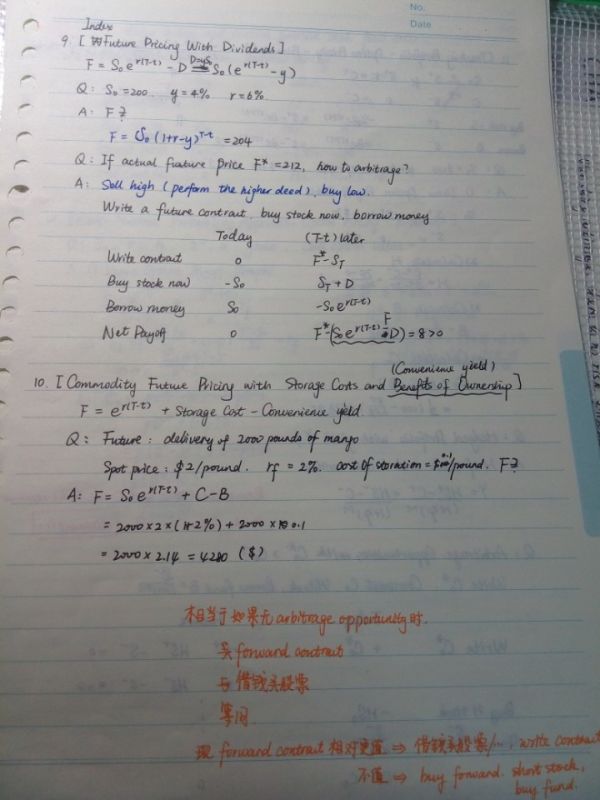 No.
Date
Index
9. [Future Pricing With Dividends]
F = S₀e^r(T-t) - D =(D=yS₀)= S₀(e^r(T-t) - y)
Q: S₀=200. y=4% r=6%
A: F?
F = S₀(1+r-y)^T-t = 204
Q: If actual fueture price F* = 212, how to arbitrage?
A: Sell high (perform the higher deed), buy low.
Write a future contract, buy stock now, borrow money
Today (T-t) later
Write contract 0 F* - S_T
Buy stock now -S₀ S_T + D
Borrow money S₀ -S₀e^r(T-t)
Net Payoff 0 F* - (S₀e^r(T-t) - D) = 8 > 0
F
(Convenience yield)
10. [Commodity Future Pricing with Storage Costs and Benefits of Ownership]
F = e^r(T-t) + Storage Cost - Convenience yield
Q: Future: delivery of 2000 pounds of mango
Spot price: $2/pound. rf = 2%. cost of storation = $0.1/pound. F?
A: F = S₀e^r(T-t) + C - B
= 2000 × 2 × (1+2%) + 2000 × 0.1
= 2000 × 2.14 = 4280 ($)
相当于如果无 arbitrage opportunity 时.
买 forward contract
与 借钱买股票
等同
现 forward contract 相对更值 ⇒ 借钱买股票/…, write contract
不值 ⇒ buy forward. short stock,
buy fund.